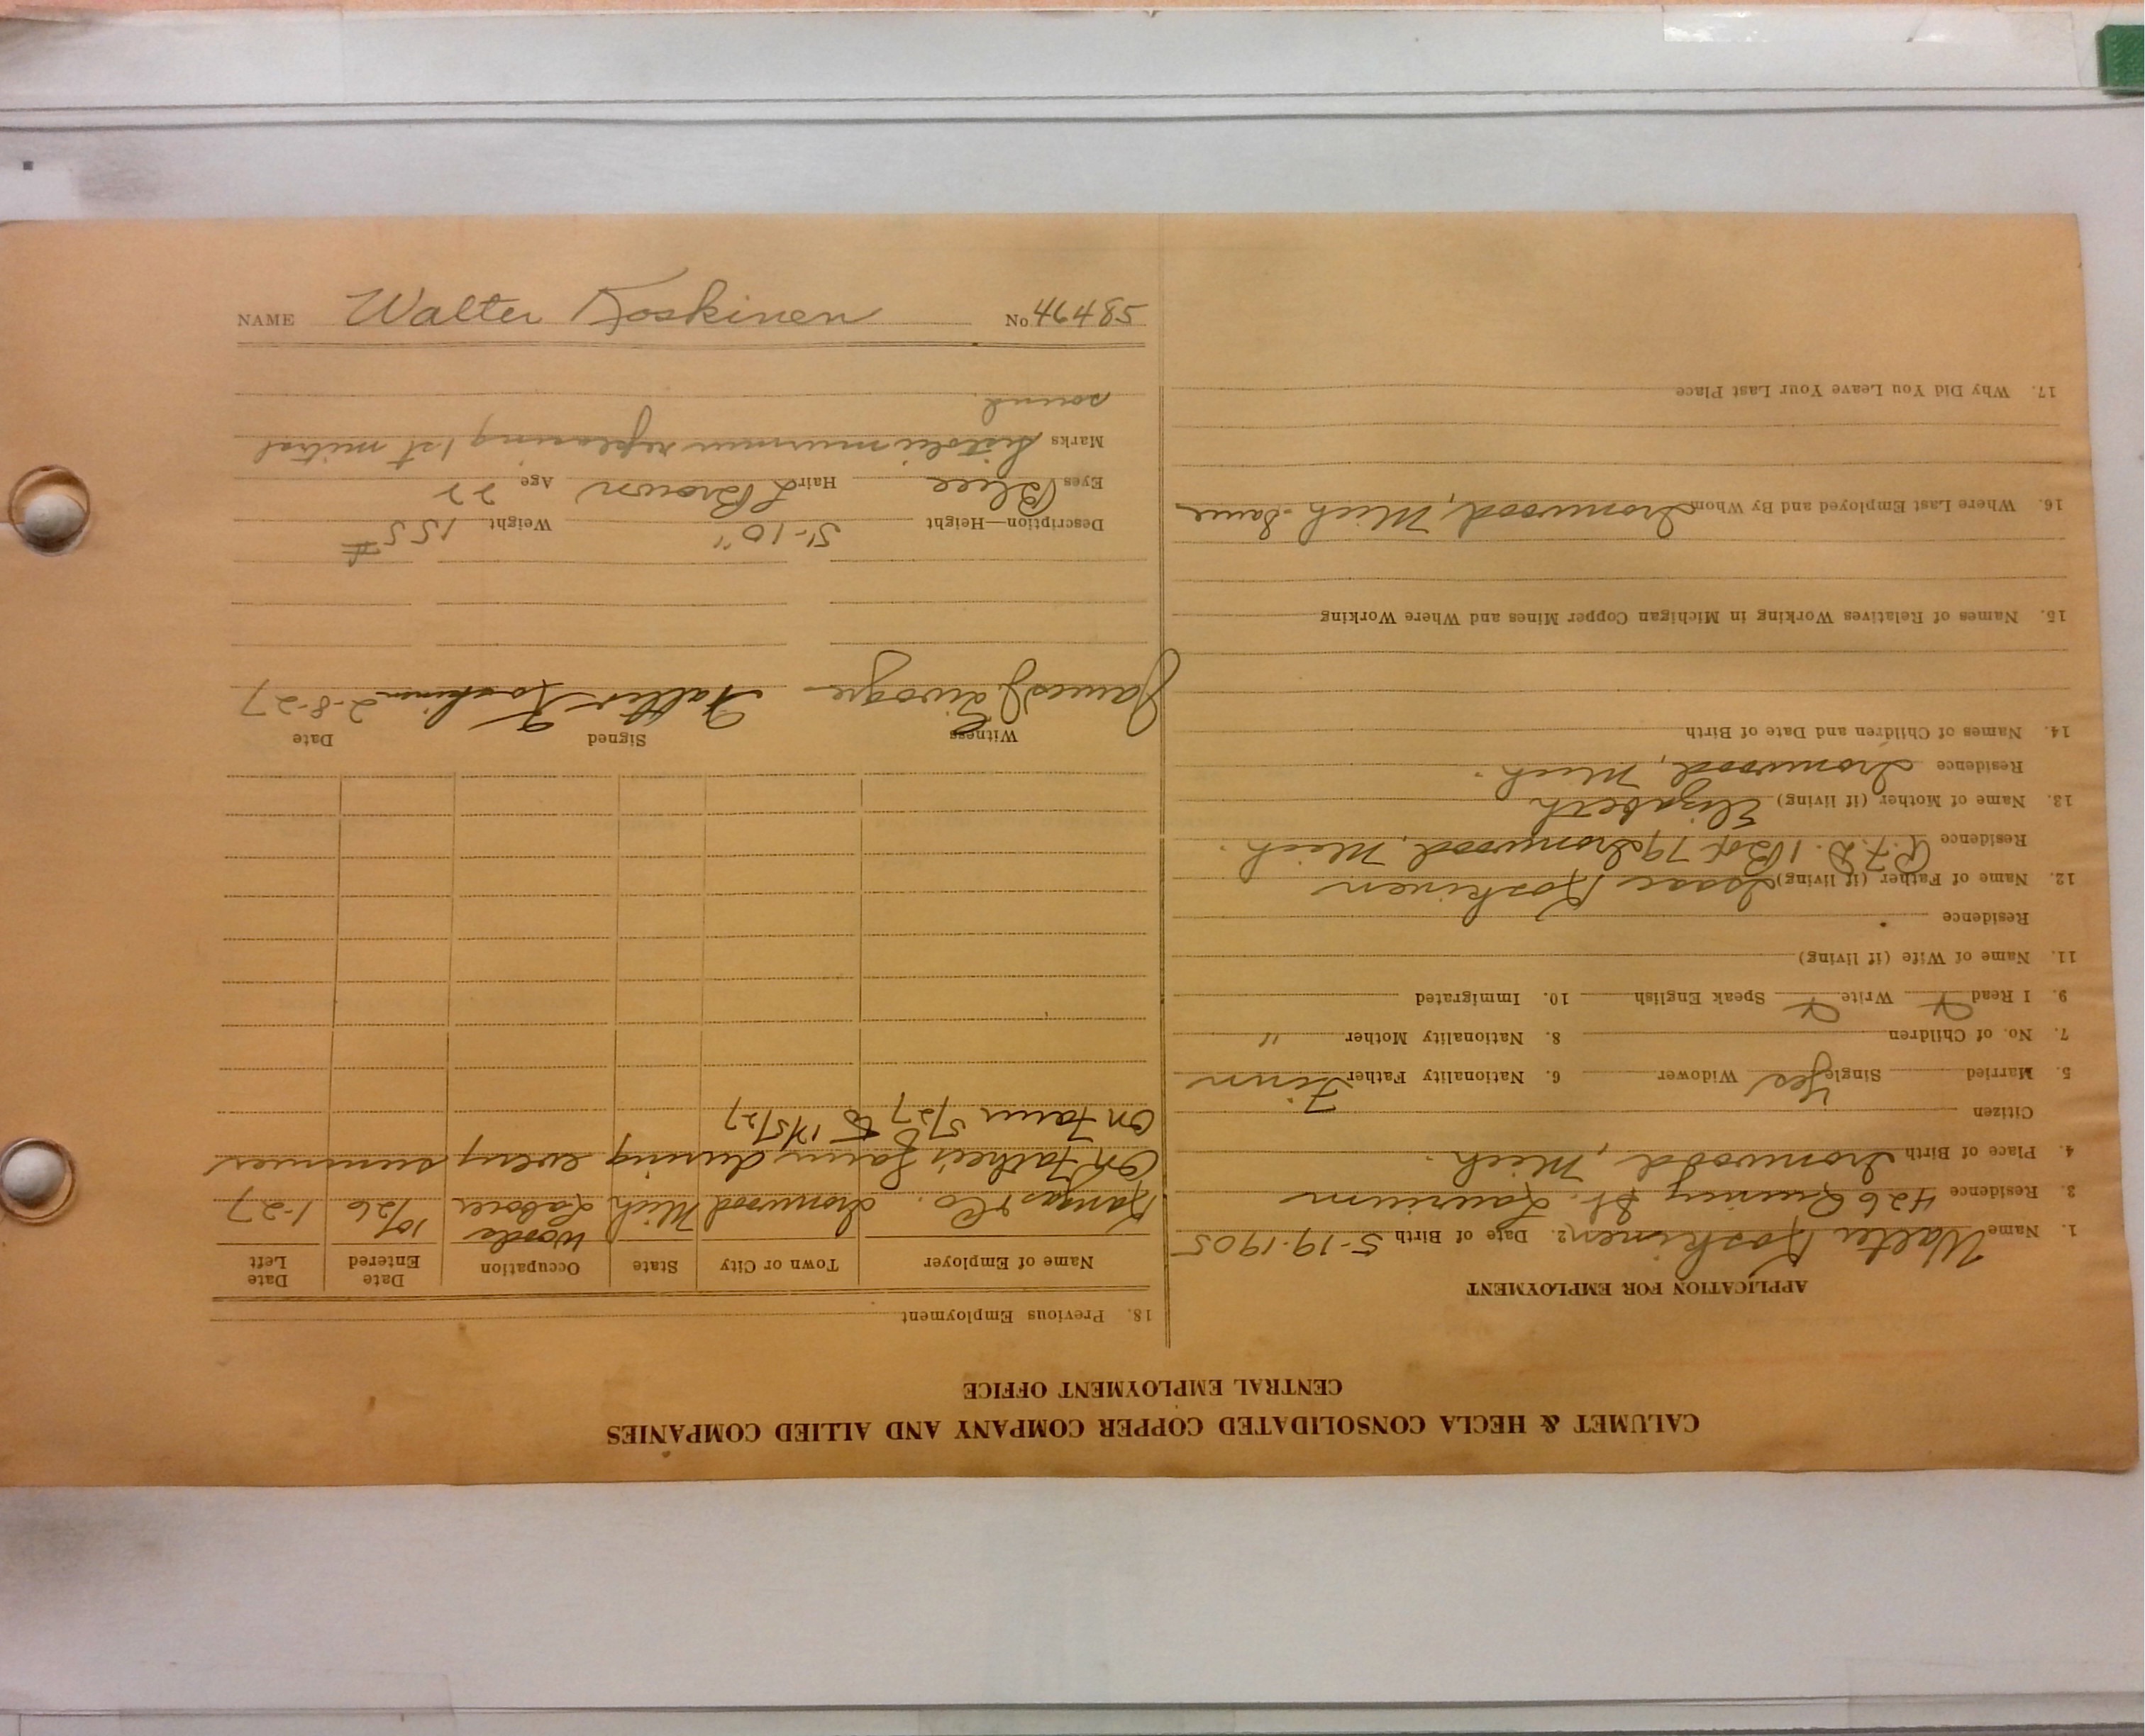 CALUMET & HECLA CONSOLIDATED COPPER COMPANY AND ALLIED COMPANIES
CENTRAL EMPLOYMENT OFFICE
APPLICATION FOR EMPLOYMENT
1. Name Walter Koskinen 2. Date of Birth 5-19-1905
3. Residence 426 Quincy St. Laurium
4. Place of Birth Ironwood, Mich.
Citizen
5. Married Single Yes Widower 6. Nationality Father Finn
7. No. of Children 8. Nationality Mother "
9. I Read Write Speak English 10. Immigrated
11. Name of Wife (if living)
Residence
12. Name of Father (if living) Isaac Koskinen
Residence R.F.D. 1 Box 79 Ironwood, Mich.
13. Name of Mother (if living) Elizabeth
Residence Ironwood, Mich.
14. Names of Children and Date of Birth
15. Names of Relatives Working in Michigan Copper Mines and Where Working
16. Where Last Employed and By Whom Ironwood, Mich - Same
17. Why Did You Leave Your Last Place
18. Previous Employment
Name of Employer Town or City State Occupation Date Entered Date Left
Kangas & Co. Ironwood Mich Woods Laborer 10/26 1-27
On father's farm during every summer
On farm 5/27 to 12/5/27
Witness Signed Date
James Walter Koskinen 2-8-27
Description—Height 5'-10" Weight 155#
Eyes Blue Hair L Brown Age 22
Marks Sistolic murmur replacing 1st mitral
sound
NAME Walter Koskinen No 46485